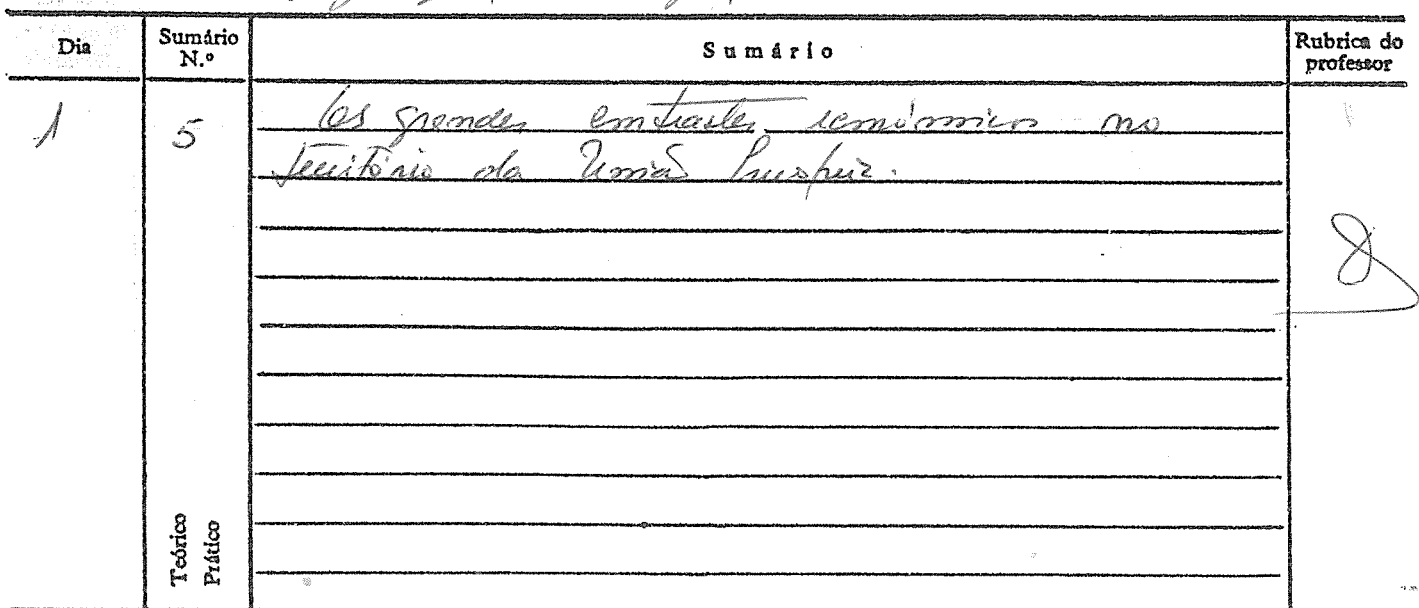 Dia
Sumário N.º
Sumário
Rubrica do professor
1
5
Os grandes contrastes económicos no
território da União Europeia.
Teórico
Prático